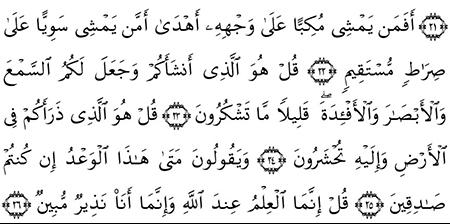 ﴿٢١﴾ أَفَمَن يَمْشِى مُكِبًّا عَلَىٰ وَجْهِهِۦٓ أَهْدَىٰٓ أَمَّن يَمْشِى سَوِيًّا عَلَىٰ
صِرَٰطٍ مُّسْتَقِيمٍ ﴿٢٢﴾ قُلْ هُوَ ٱلَّذِىٓ أَنشَأَكُمْ وَجَعَلَ لَكُمُ ٱلسَّمْعَ
وَٱلْأَبْصَٰرَ وَٱلْأَفْـِٔدَةَ ۖ قَلِيلًا مَّا تَشْكُرُونَ ﴿٢٣﴾ قُلْ هُوَ ٱلَّذِى ذَرَأَكُمْ فِى
ٱلْأَرْضِ وَإِلَيْهِ تُحْشَرُونَ ﴿٢٤﴾ وَيَقُولُونَ مَتَىٰ هَٰذَا ٱلْوَعْدُ إِن كُنتُمْ
صَٰدِقِينَ ﴿٢٥﴾ قُلْ إِنَّمَا ٱلْعِلْمُ عِندَ ٱللَّهِ وَإِنَّمَآ أَنَا۠ نَذِيرٌ مُّبِينٌ ﴿٢٦﴾